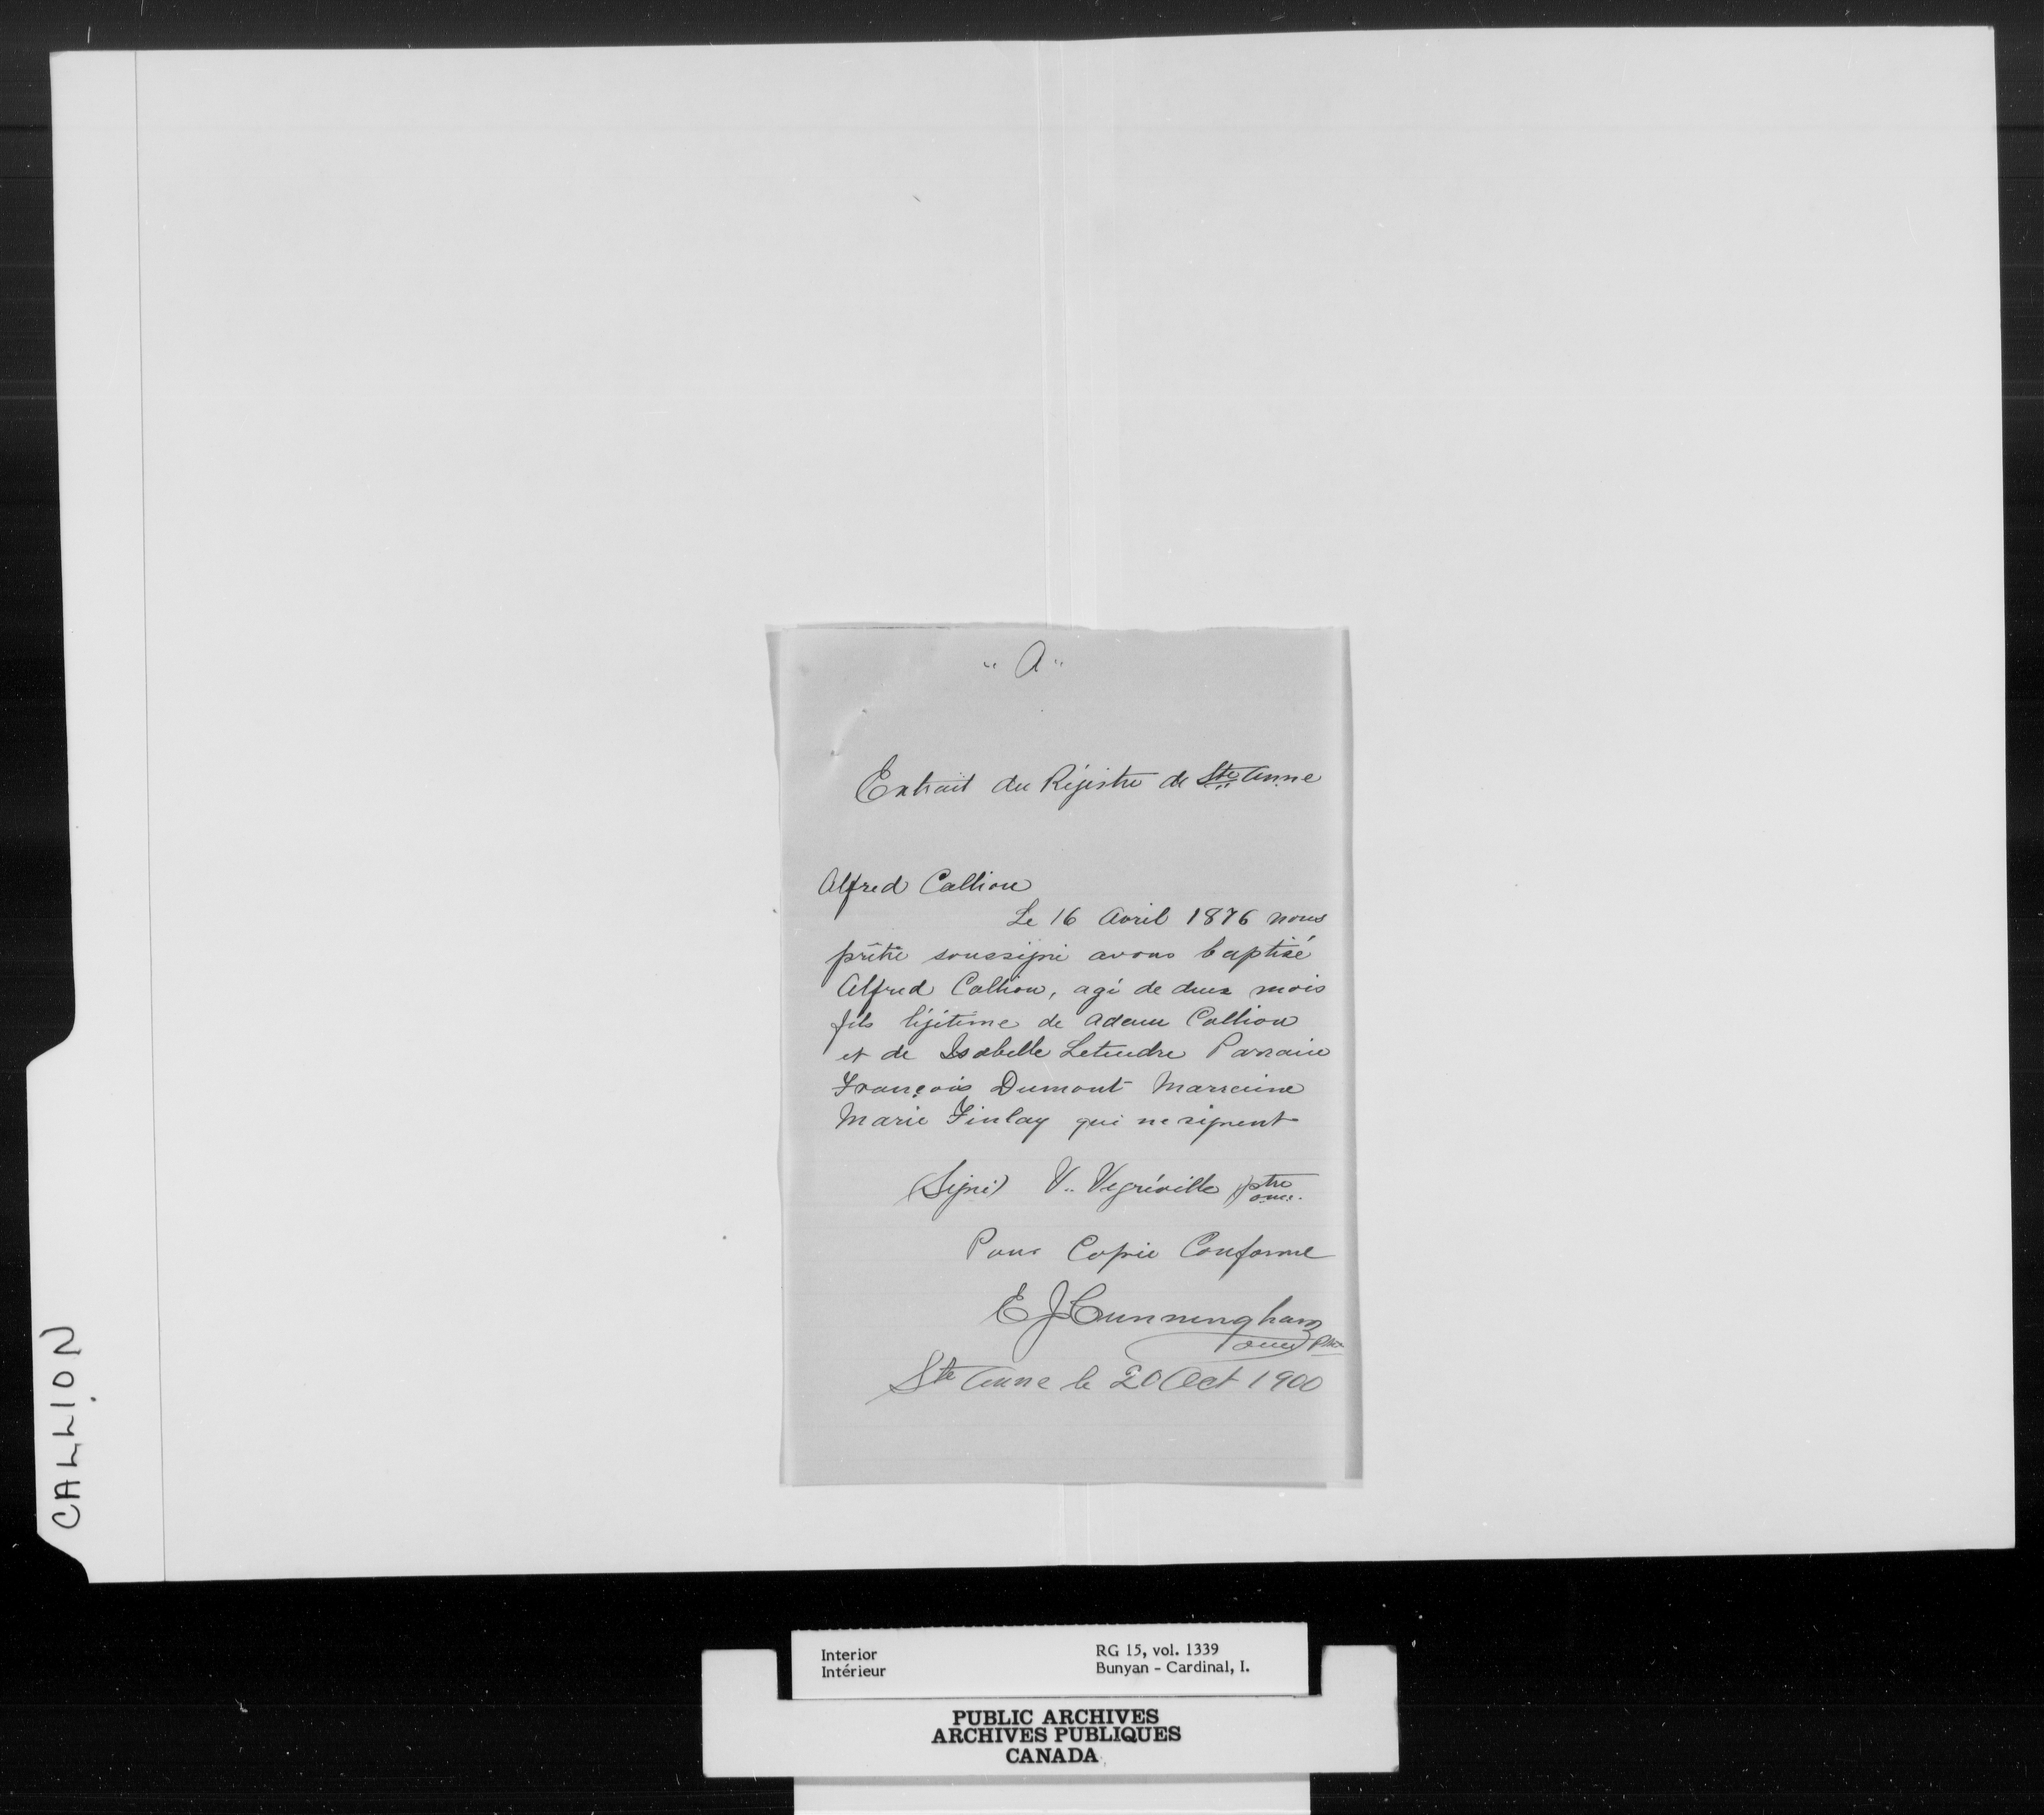 "A"
Extrait du Régistre de Ste Anne
Alfred Callion
Le 16 Avril 1876 nous
prêtre soussigné avons baptisé
Alfred Callion, agé de deux mois
fils légitime de Adam Callion
et de Isabelle Letendre Parrain
François Dumont Marraine
Marie Finlay qui ne signent
(Signé) V. Vegréville ptre
o.m.i.
Pour Copie Conforme
E J Cunningham
omi Ptre
Ste Anne le 20 Oct 1900
CALLION
Interior
Intérieur
RG 15, vol. 1339
Bunyan - Cardinal, I.
PUBLIC ARCHIVES
ARCHIVES PUBLIQUES
CANADA